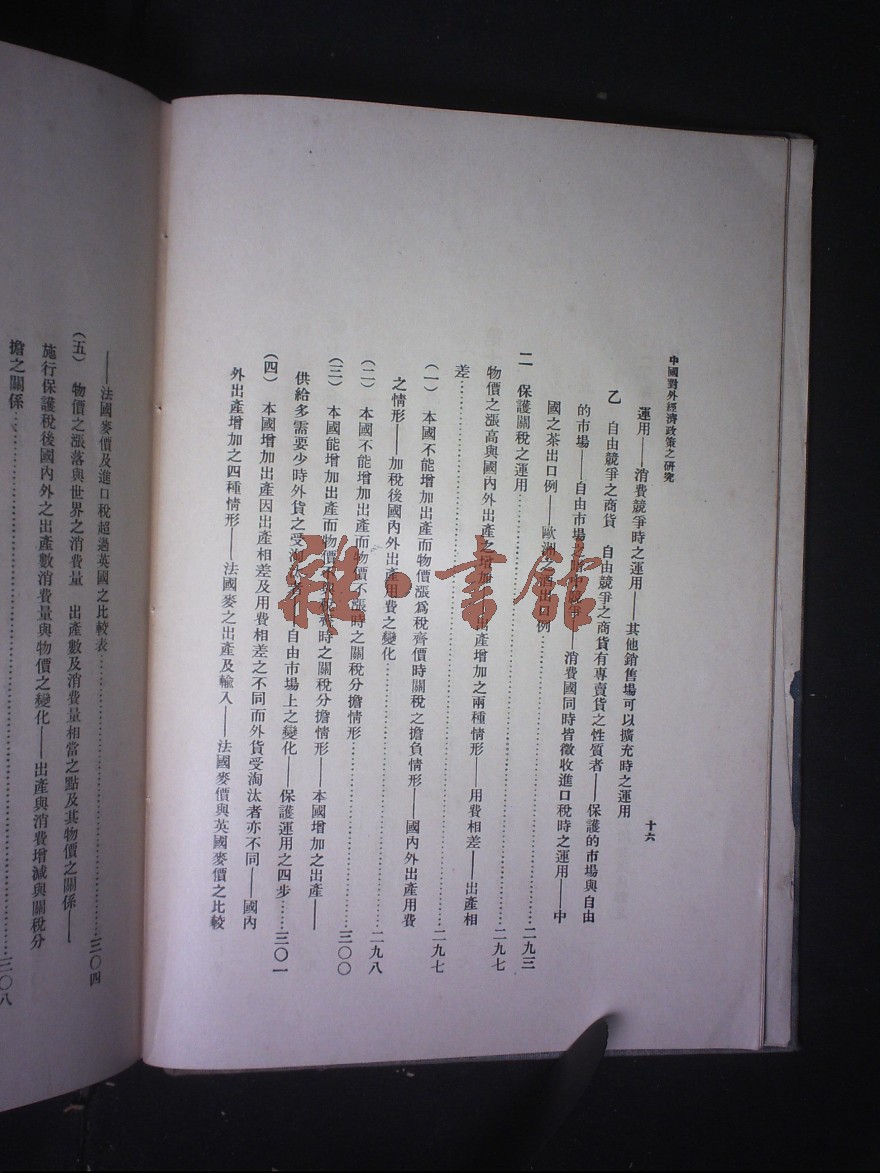 中國對外經濟政策之硏究
十六
運用——消費競爭時之運用——其他銷售場可以擴充時之運用
乙 自由競爭之商貨 自由競爭之商貨有專賣貨之性質者——保護的市場與自由
的市場——自由市場之暗中競爭——消費國同時皆徵收進口稅時之運用——中
國之茶出口例——歐洲之酒出口例
二 保護關稅之運用……二九三
物價之漲高與國內外出產之增加——出產增加之兩種情形——用費相差——出產相
差……二九七
(一) 本國不能增加出產而物價漲爲稅齊價時關稅之擔負情形——國內外出產用費
之情形——加稅後國內外出產用費之變化……二九七
(二) 本國不能增加出產而物價不漲時之關稅分擔情形……二九八
(三) 本國能增加出產而物價不與稅齊時之關稅分擔情形——本國增加之出產——
供給多需要少時外貨之受淘汰者——自由市場上之變化——保護運用之四步……三〇〇
(四) 本國增加出產因出產相差及用費相差之不同而外貨受淘汰者亦不同——國內
外出產增加之四種情形——法國麥之出產及輸入——法國麥價與英國麥價之比較
三〇一
——法國麥價及進口稅超過英國之比較表……三〇四
(五) 物價之漲落與世界之消費量 出產數及消費量相當之點及其物價之關係——
施行保護稅後國內外之出產數消費量與物價之變化——出產與消費增減與關稅分
擔之關係……三〇八
雜·書館